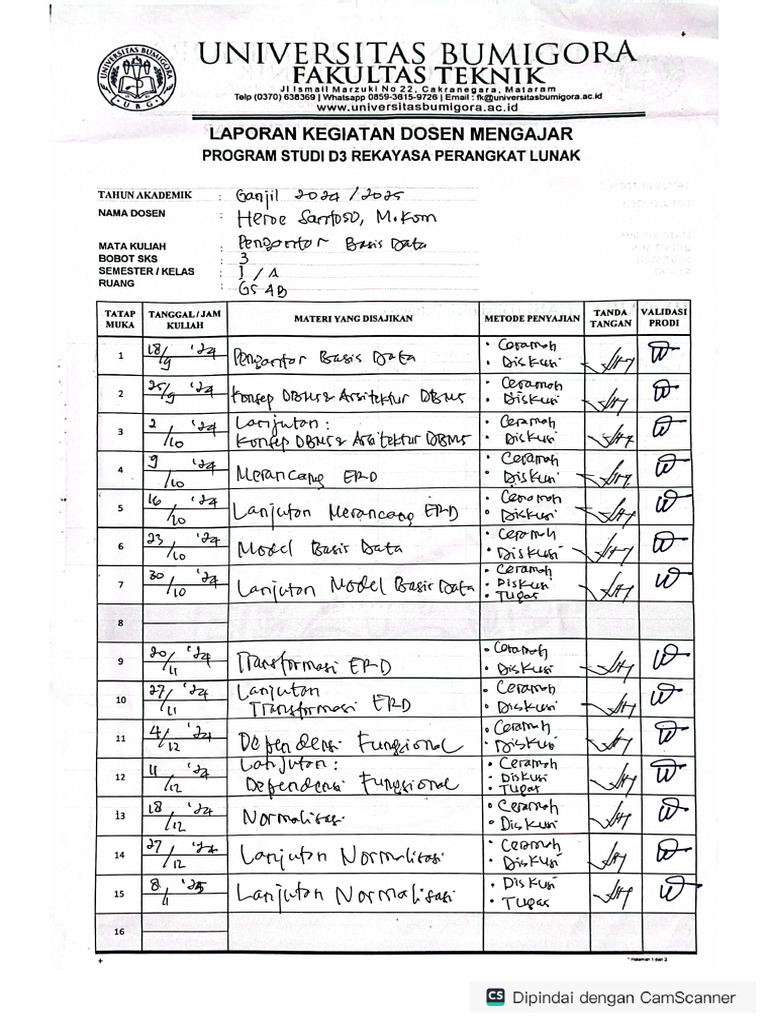 UNIVERSITAS BUMIGORA
U B G
UNIVERSITAS BUMIGORA
FAKULTAS TEKNIK
Jl Ismail Marzuki No 22, Cakranegara, Mataram
Telp (0370) 638369 | Whatsapp 0859-3615-9726 | Email : fk@universitasbumigora.ac.id
www.universitasbumigora.ac.id
LAPORAN KEGIATAN DOSEN MENGAJAR
PROGRAM STUDI D3 REKAYASA PERANGKAT LUNAK
TAHUN AKADEMIK : Ganjil 2024/2025
NAMA DOSEN : Heroe Santoso, M.Kom
MATA KULIAH : Pengantar Basis Data
BOBOT SKS : 3
SEMESTER / KELAS : 1 / A
RUANG : GS4B
TATAP MUKA TANGGAL / JAM KULIAH MATERI YANG DISAJIKAN METODE PENYAJIAN TANDA TANGAN VALIDASI PRODI
1 18/9 '24 Pengantar Basis Data • Ceramah • Diskusi
2 25/9 '24 Konsep DBMS & Arsitektur DBMS • Ceramah • Diskusi
3 2/10 '24 Lanjutan : Konsep DBMS & Arsitektur DBMS • Ceramah • Diskusi
4 9/10 '24 Merancang ERD • Ceramah • Diskusi
5 16/10 '24 Lanjutan Merancang ERD • Ceramah • Diskusi
6 23/10 '24 Model Basis Data • Ceramah • Diskusi
7 30/10 '24 Lanjutan Model Basis Data • Ceramah • Diskusi • Tugas
8
9 20/11 '24 Transformasi ERD • Ceramah • Diskusi
10 27/11 '24 Lanjutan Transformasi ERD • Ceramah • Diskusi
11 4/12 '24 Dependensi Fungsional • Ceramah • Diskusi
12 11/12 '24 Lanjutan : Dependensi Fungsional • Ceramah • Diskusi • Tugas
13 18/12 '24 Normalisasi • Ceramah • Diskusi
14 27/12 '24 Lanjutan Normalisasi • Ceramah • Diskusi
15 8/1 '25 Lanjutan Normalisasi • Diskusi • Tugas
16
* Halaman 1 dari 2
CS Dipindai dengan CamScanner